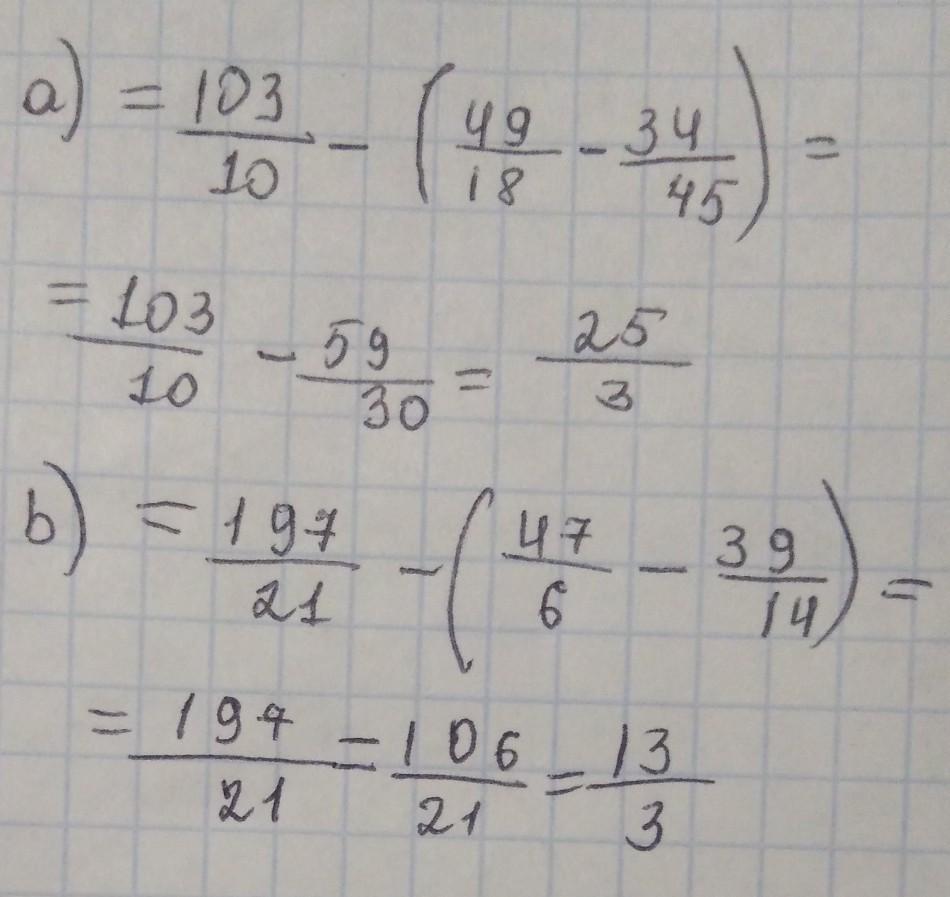 a) = 103/10 - (49/18 - 34/45) =
= 103/10 - 59/30 = 25/3
b) = 197/21 - (47/6 - 39/14) =
= 197/21 = 106/21 = 13/3